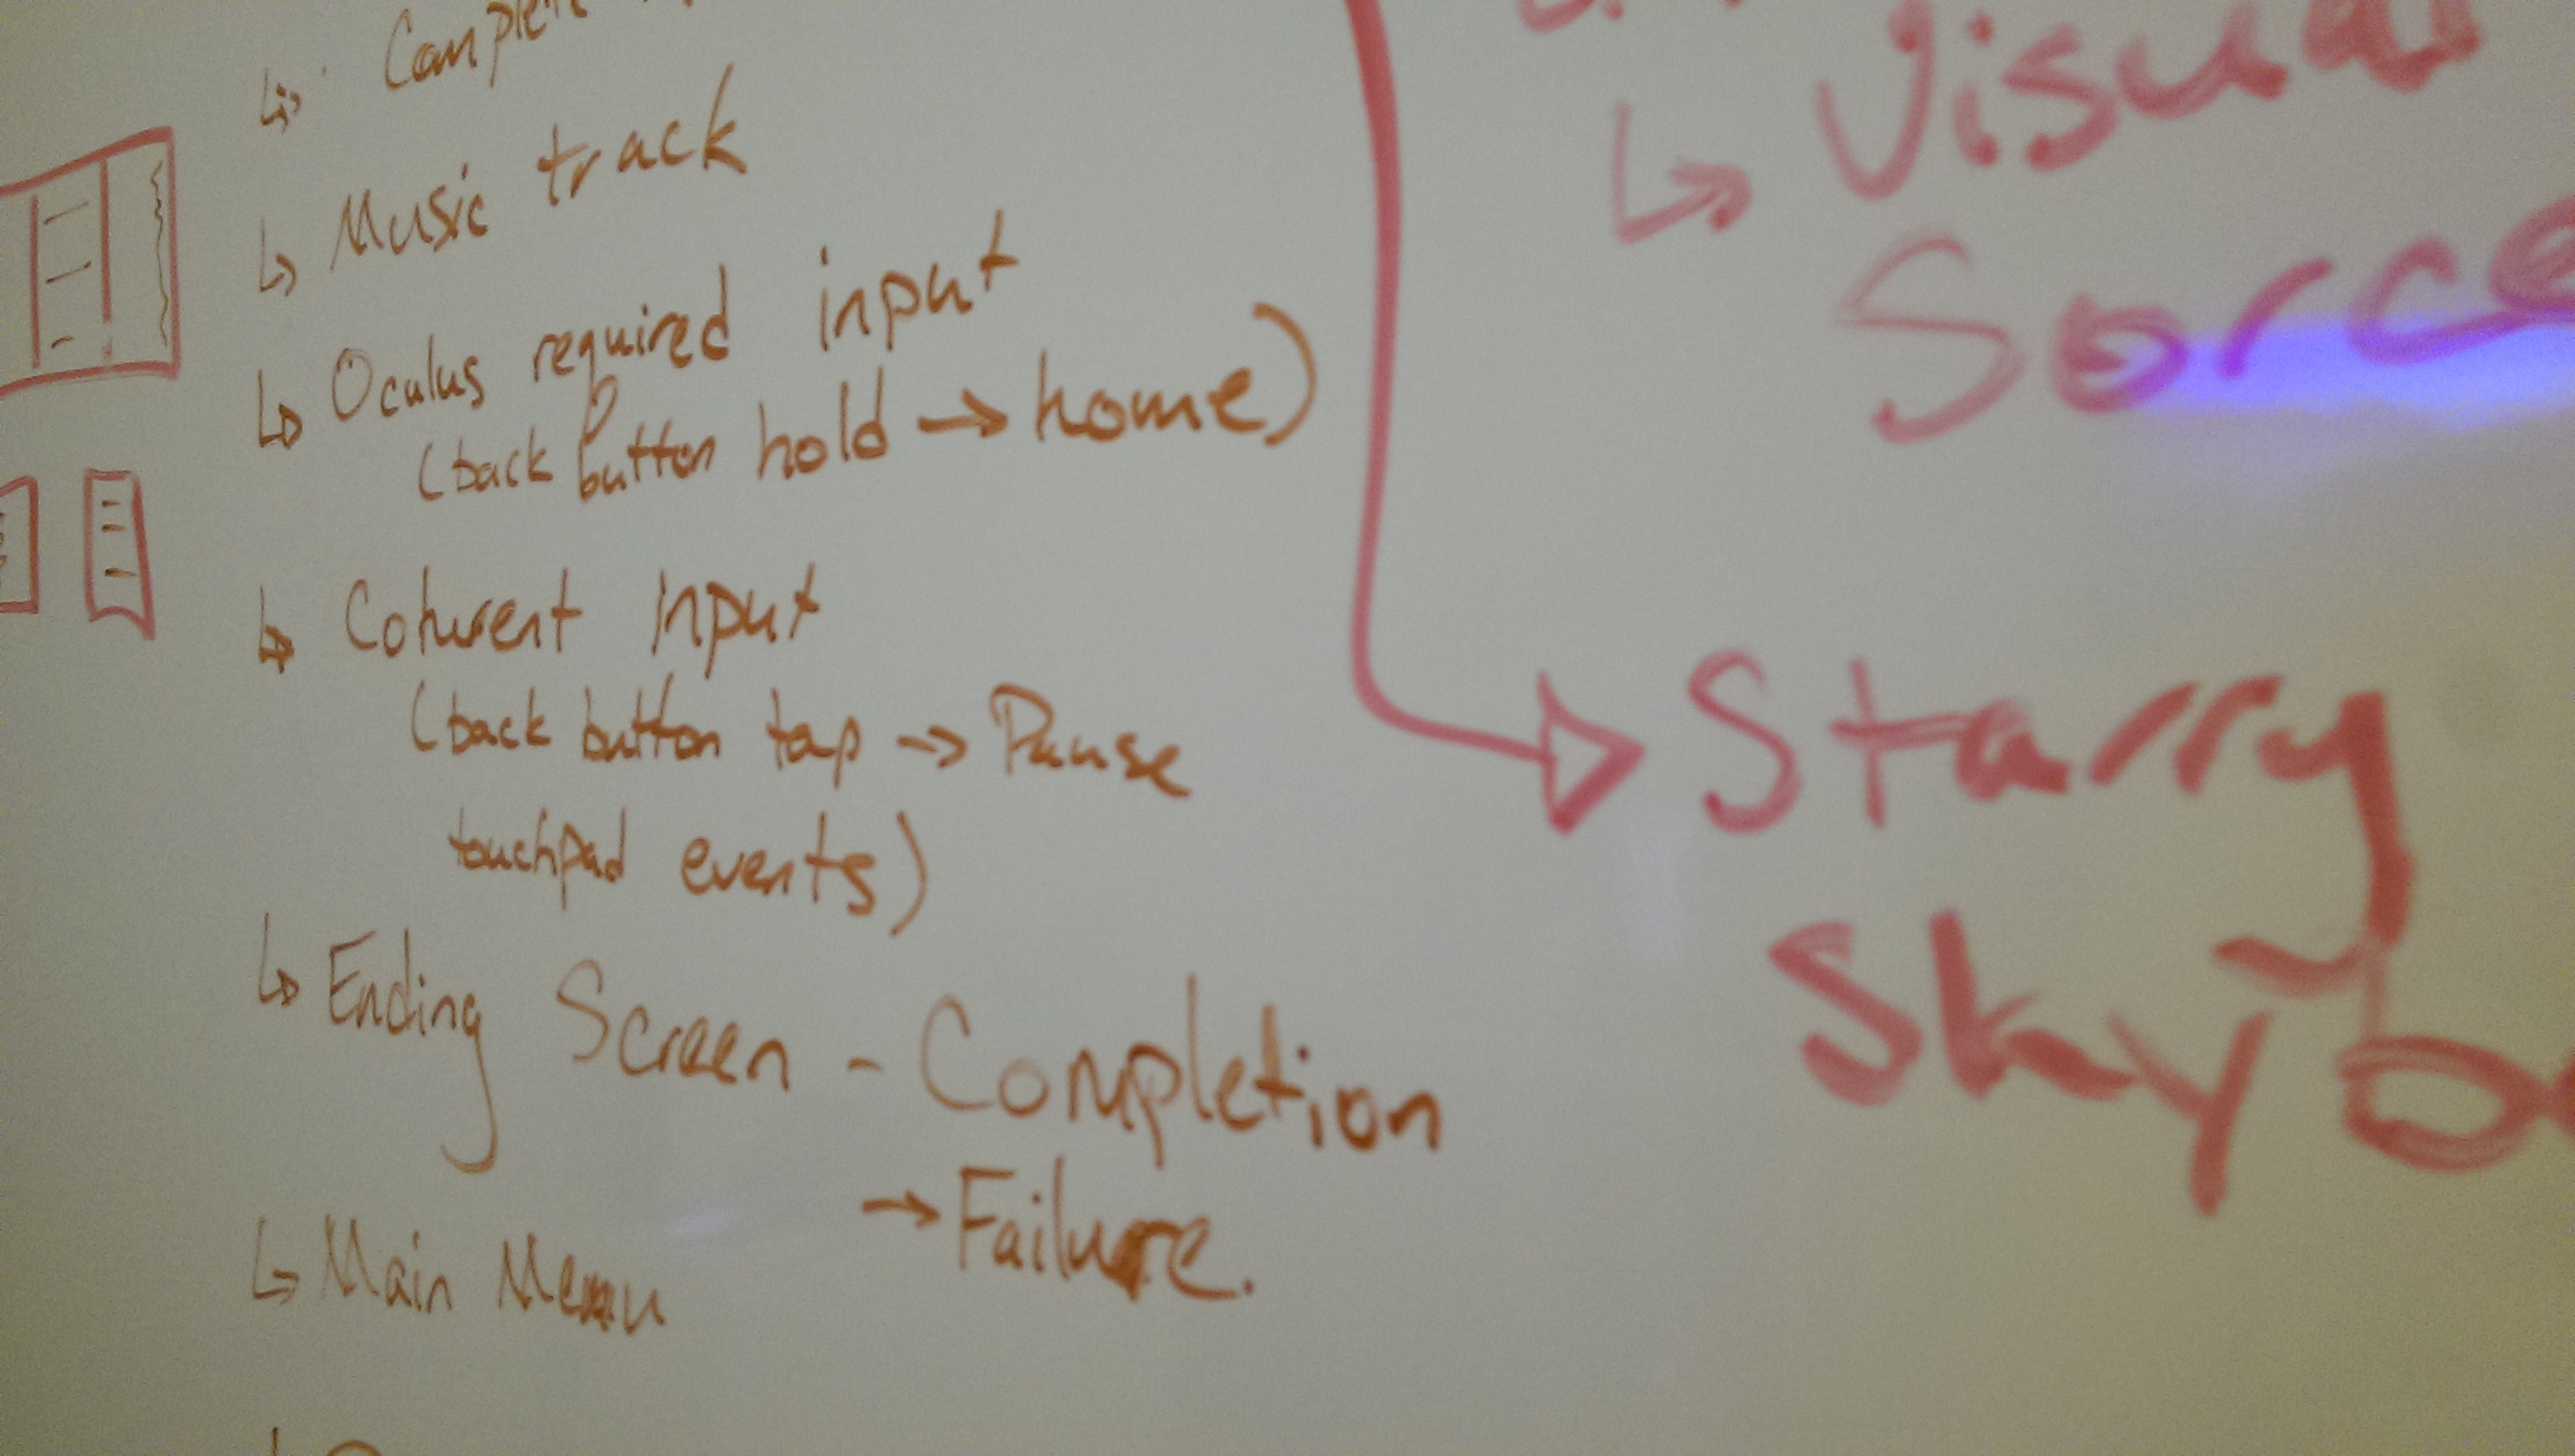 Music track
Oculus required input
(back button hold → home)
Coherent input
(back button tap → Pause
touchpad events)
Ending Screen - Completion
→ Failure.
Main Menu
Visual
Starry